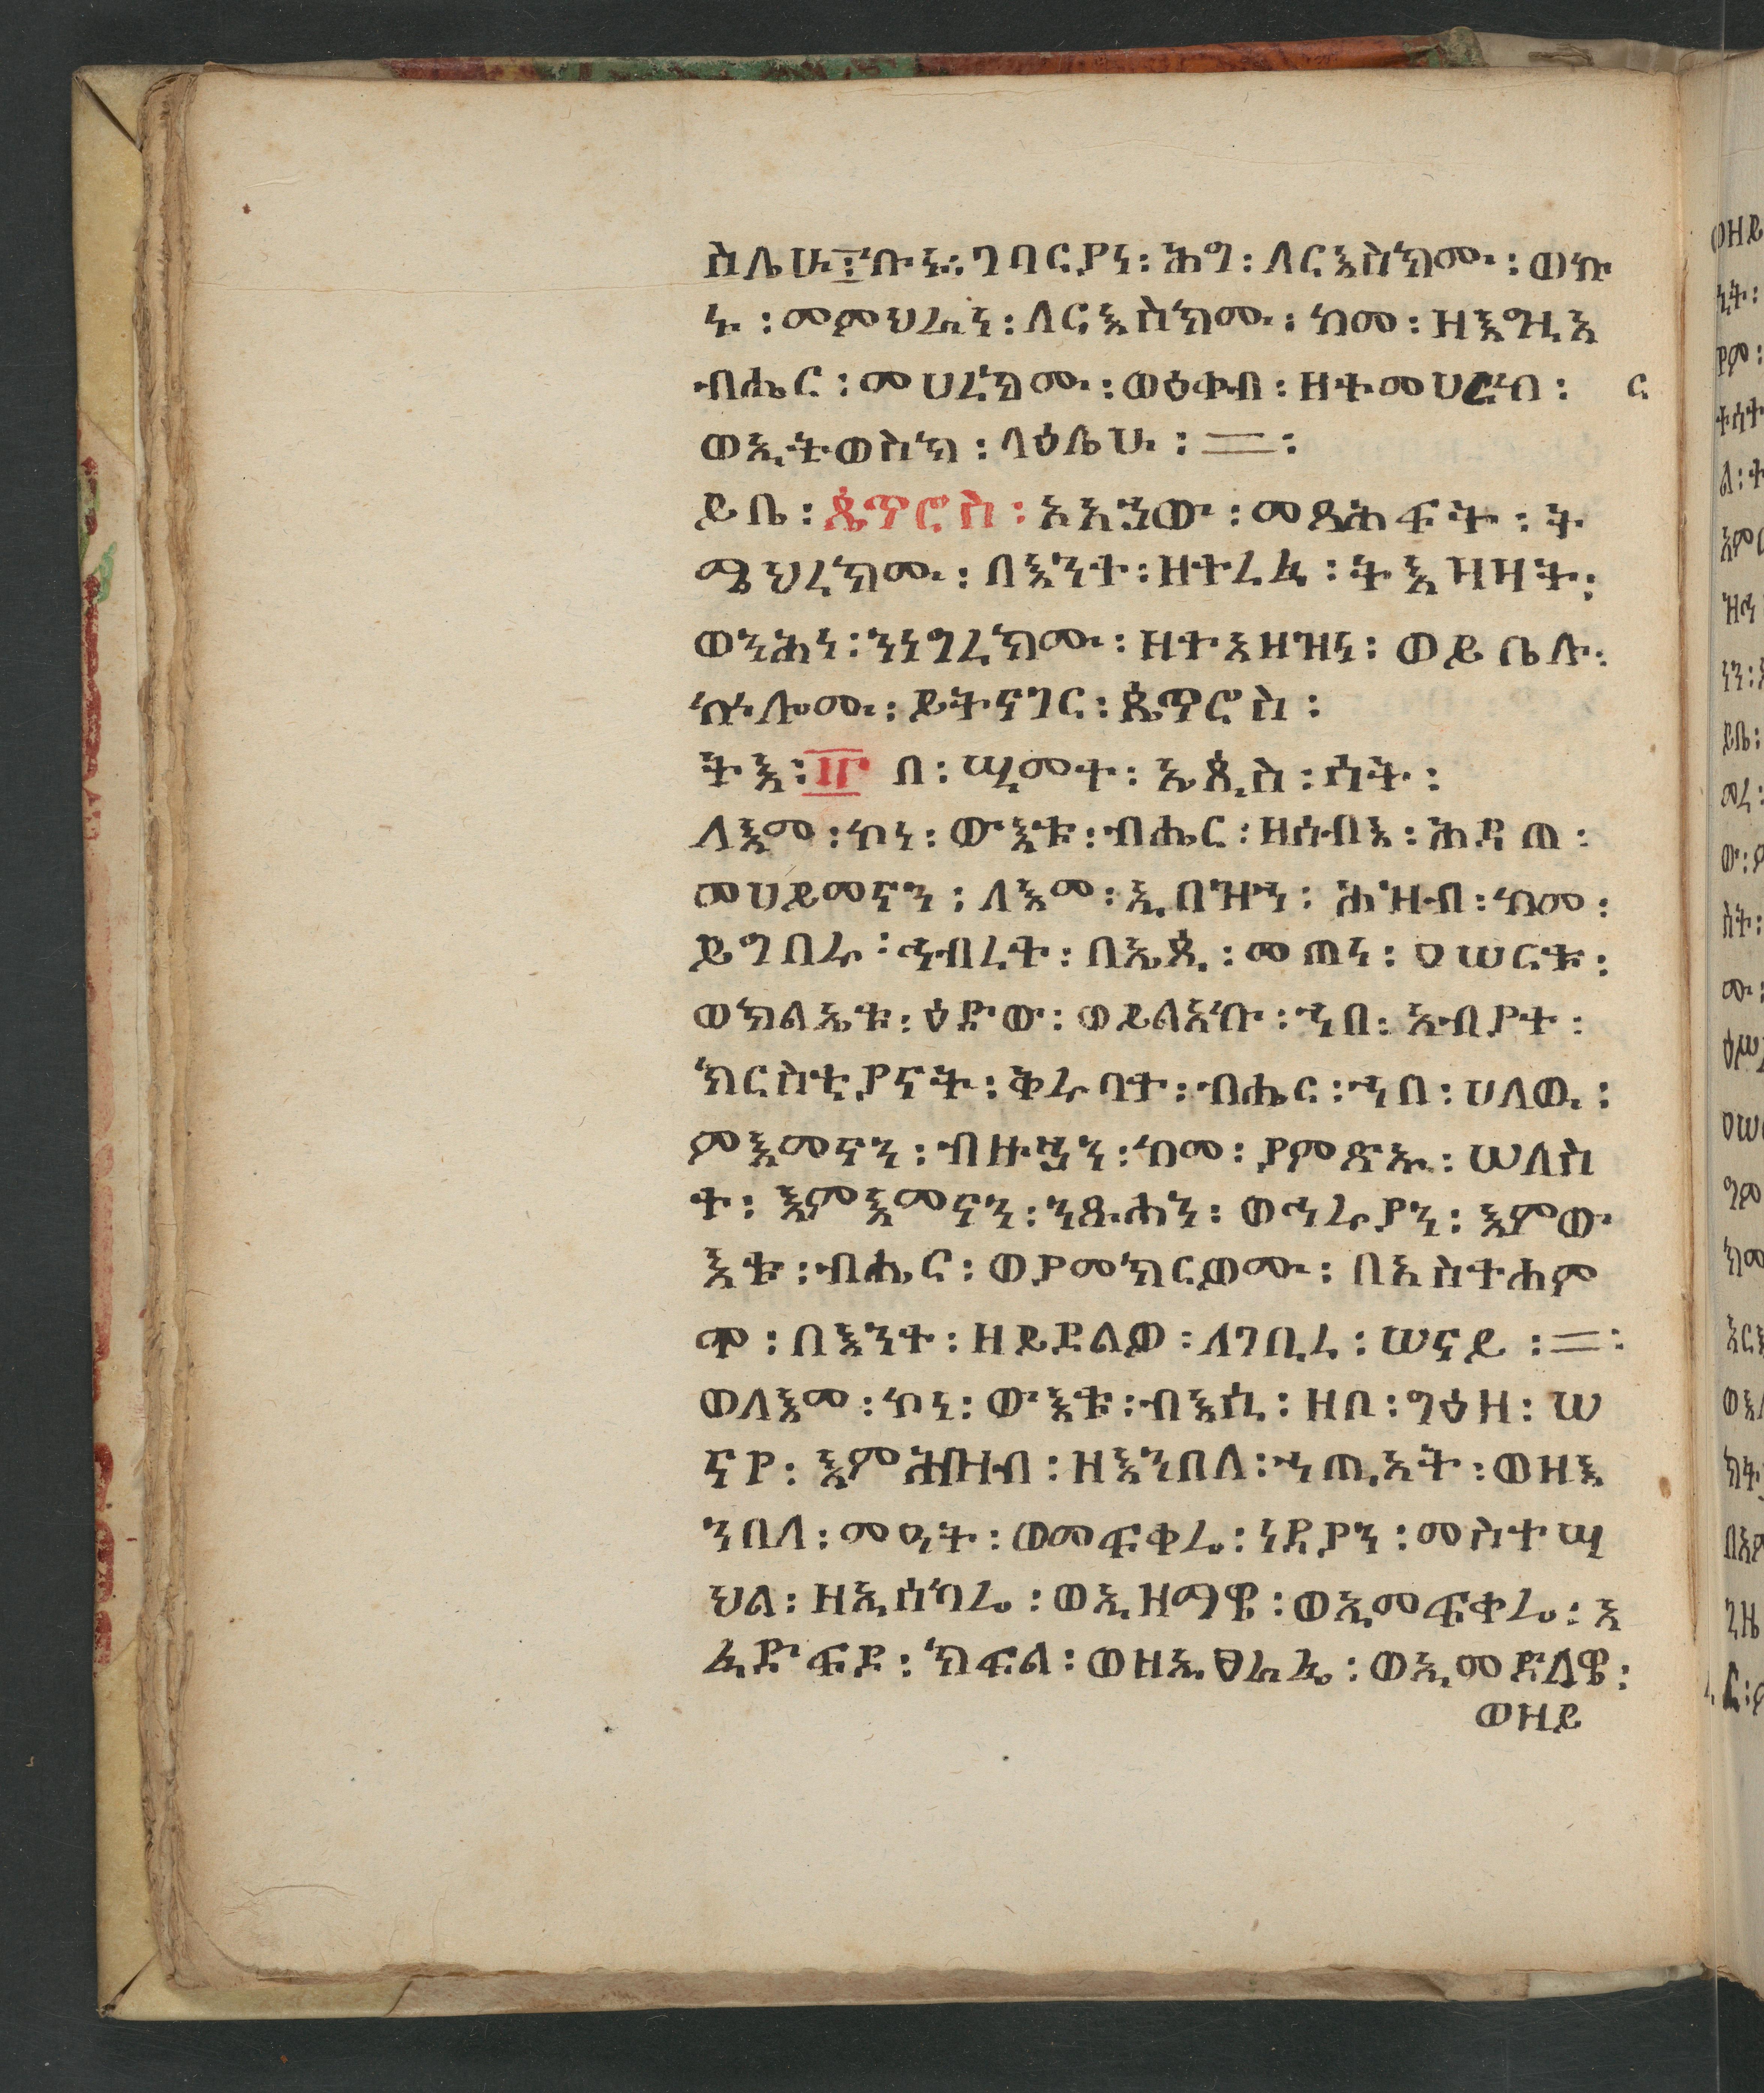 ስሌሁ፤ኩኑ፡ገባርያነ፡ሕግ፡ለርእስክሙ፡ወኩ
ኑ፡መምህራነ፡ለርእስክሙ፡ከመ፡ዘእግዚአ
ብሔር፡መሀረክሙ፡ወዕቀብ፡ዘተመሀርከ፡
ወኢትወስክ፡ላዕሌሁ፡=፡
ይቤ፡ጴጥሮስ፡አአኀው፡መጻሕፍት፡ት
ሜህረክሙ፡በእንተ፡ዘተረፈ፡ትእዛዛት፡
ወንሕነ፡ንነግረክሙ፡ዘተአዘዝነ፡ወይቤሉ፡
ኵሎሙ፡ይትናገር፡ጴጥሮስ፡
ትእ፡፲፫ በ፡ሢመተ፡ኤጲስ፡ሰት፡
ለእመ፡ኮነ፡ውእቱ፡ብሔር፡ዘሰብእ፡ሕዳጠ፡
መሀይመናን፡ለእመ፡ኢበዝኀ፡ሕዝብ፡ከመ፡
ይግበሩ፡ኅብረተ፡በኤጲ፡መጠነ፡ዐሠርቱ፡
ወክልኤቱ፡ዕደው፡ወይልአኩ፡ኀበ፡አብያተ፡
ክርስቲያናት፡ቅሩባተ፡ብሔር፡ኀበ፡ሀለዉ፡
ምእመናን፡ብዙኃን፡ከመ፡ያምጽኡ፡ሠለስ
ተ፡እምእመናን፡ንጹሐን፡ወኅሩያን፡እምው
እቱ፡ብሔር፡ወያመክርወሙ፡በአስተሐም
ሞ፡በእንተ፡ዘይደልዎ፡ለገቢረ፡ሠናይ፡=፡
ወለእመ፡ኮነ፡ውእቱ፡ብእሲ፡ዘቦ፡ግዕዘ፡ሠ
ናየ፡እምሕዝብ፡ዘእንበለ፡ኀጢአት፡ወዘእ
ንበለ፡መዓት፡ወመፍቀሬ፡ነዳያን፡መስተሣ
ህል፡ዘኢሰካሬ፡ወኢዘማዊ፡ወኢመፍቀሬ፡አ
ፈድፍዶ፡ክፍል፡ወዘኢፀራፊ፡ወኢመድልዊ፡
ወዘይ